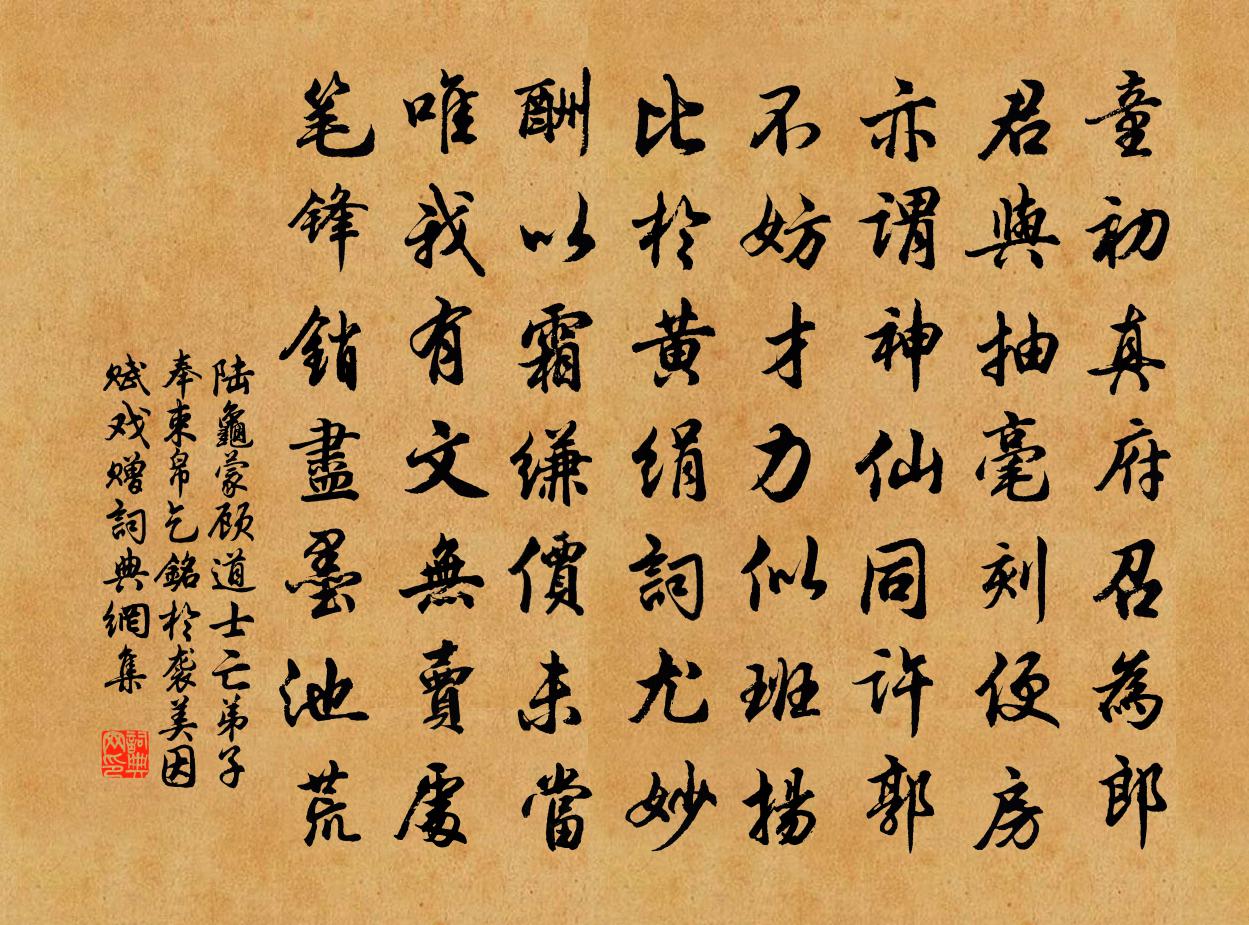 童初真府召為郎
君與抽毫刻便房
亦謂神仙同許郭
不妨才力似班揚
比於黄绢詞尤妙
酬以霜縑價未當
唯我有文無賣處
笔锋銷盡墨池荒
陆龜蒙顾道士亡弟子
奉束帛乞銘於袭美因
赋戏赠詞典網集
詞典网印